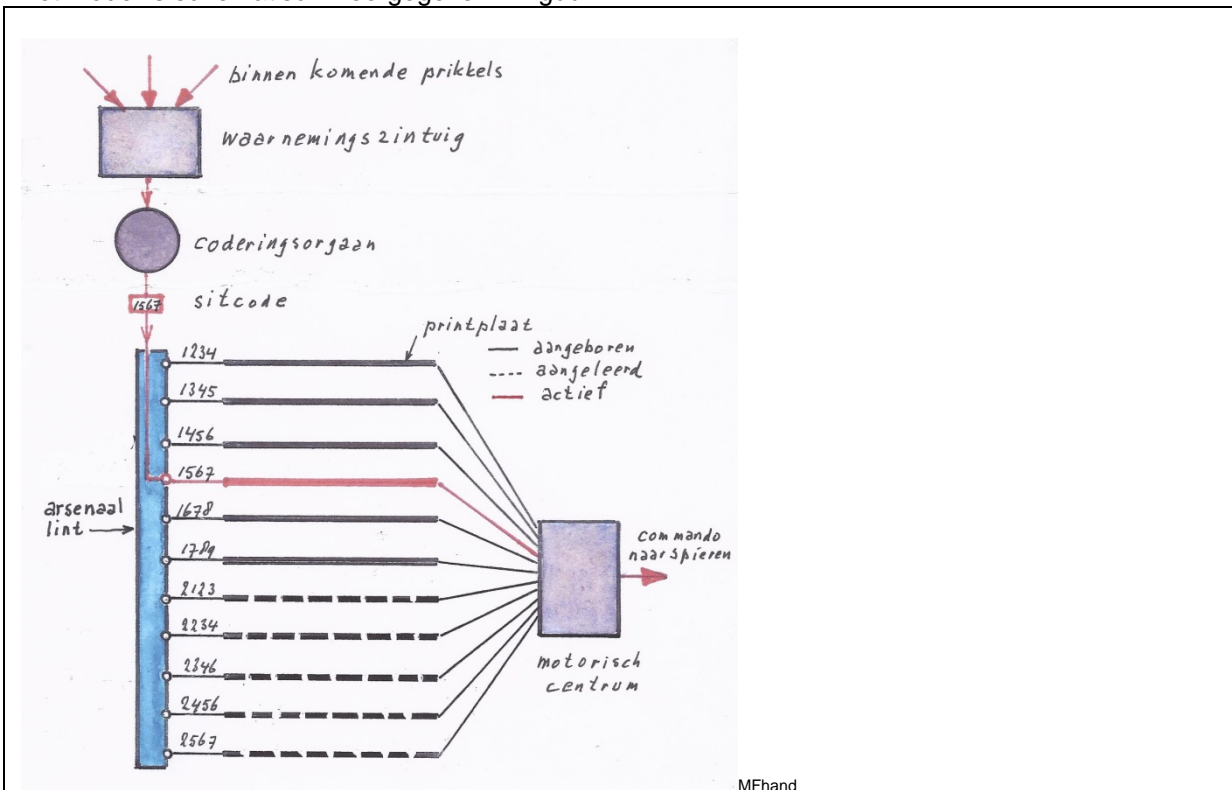 binnen komende prikkels
waarnemingszintuig
coderingsorgaan
1567
sitcode
printplaat
aangeboren
aangeleerd
actief
1234
1345
1456
1567
1678
1789
2123
2234
2346
2456
2567
arsenaal
lint
commando
naar spieren
motorisch
centrum
MFhand